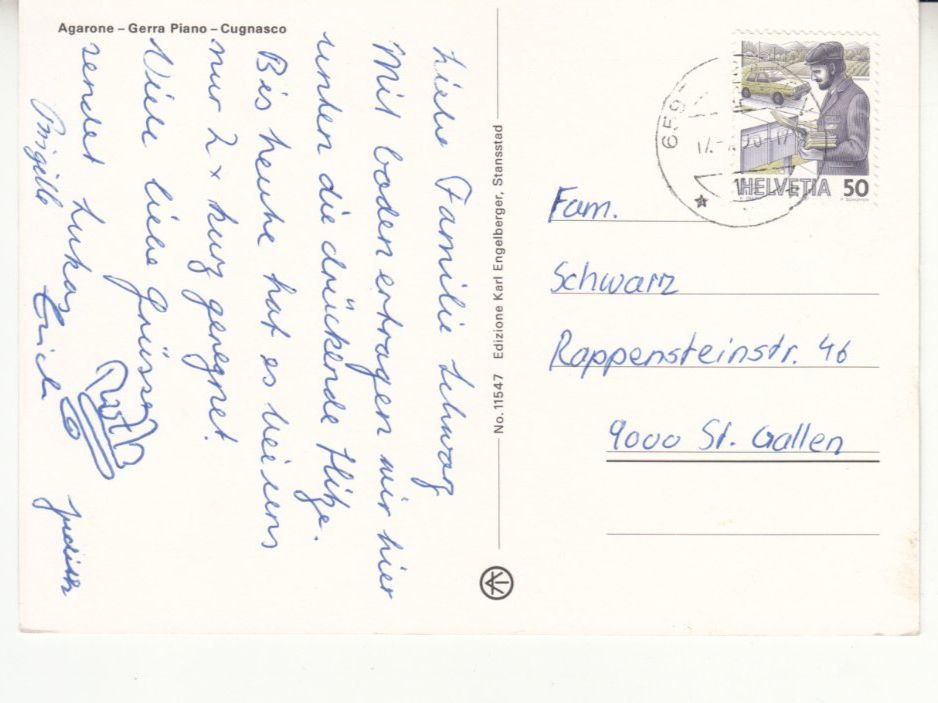 Agarone – Gerra Piano – Cugnasco
Liebe Familie Schwarz
Mit boden ertragen wir hier
unten die drückende Hitze.
Bis heute hat es bei uns
nur 2x kurz geregnet.
Viele liebe Grüsse
sendet Lukas Ruth
Brigitte Erich Judith
No. 11547 Edizione Karl Engelberger, Stansstad
HELVETIA 50
Fam.
Schwarz
Rappensteinstr. 46
9000 St. Gallen